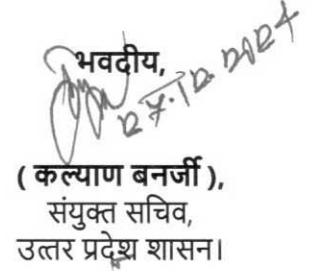 भवदीय,
27.12.2024
( कल्याण बनर्जी ),
संयुक्त सचिव,
उत्तर प्रदेश शासन।